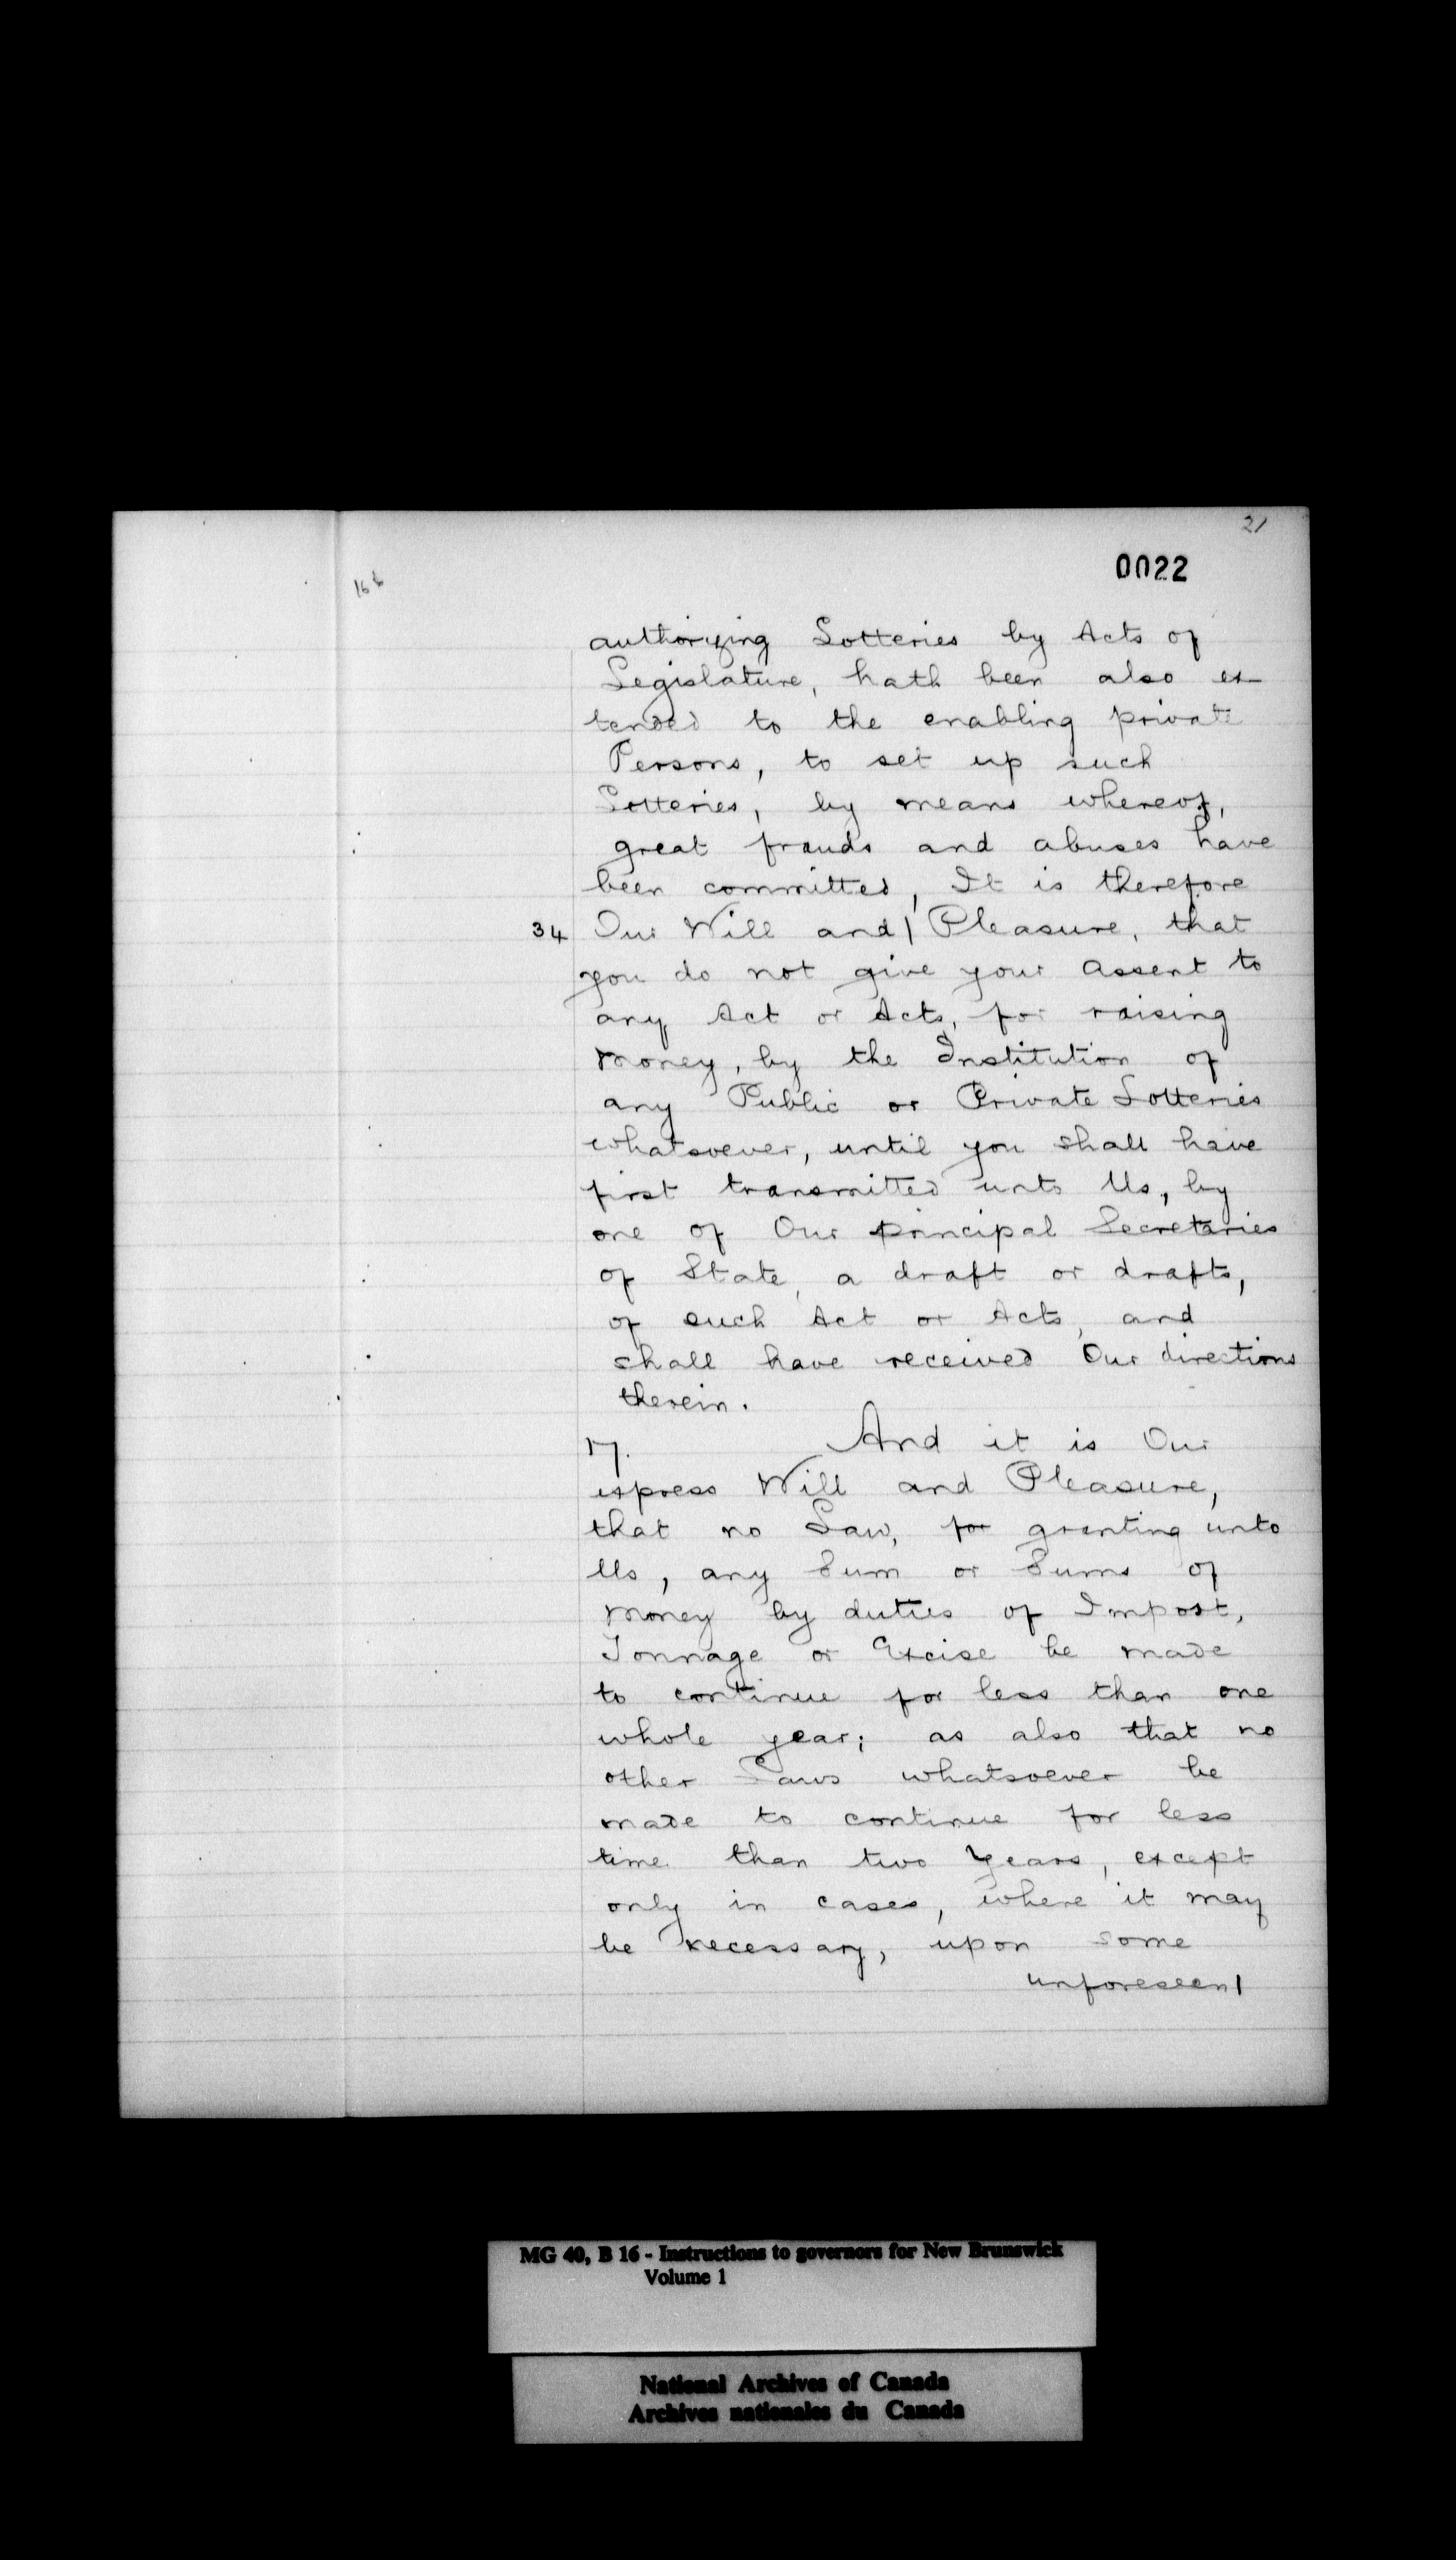 21
0022
16 b
authorizing Lotteries by Acts of
Legislature, hath been also ex-
tended to the enabling private
Persons, to set up such
Lotteries, by means whereof,
great frauds and abuses have
been committed, It is therefore
34 Our Will and| Pleasure, that
you do not give your assent to
any Act or Acts, for raising
Money, by the Institution of
any Public or Private Lotteries
whatsoever, until you shall have
first transmitted unto Us, by
one of Our principal Secretaries
of State, a draft or drafts,
of such Act or Acts, and
shall have received Our directions
therein.
17. And it is Our
express Will and Pleasure,
that no Law, for granting unto
Us, any Sum or Sums of
Money by duties of Impost,
Tonnage or Excise be made
to continue for less than one
whole year; as also that no
other Laws whatsoever be
made to continue for less
time than two Years, except
only in cases, where it may
be necessary, upon some
unforeseen|
MG 40, B 16 - Instructions to governors for New Brunswick
Volume 1
National Archives of Canada
Archives nationales du Canada